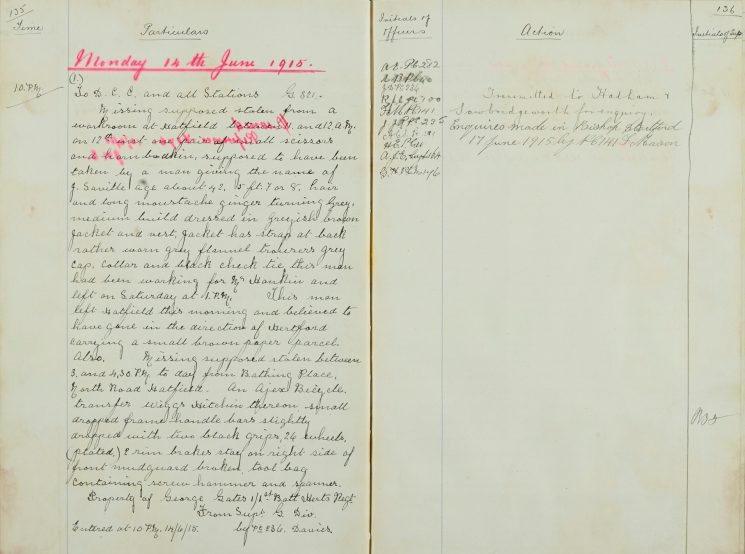 135
Time
Particulars
Monday 14th June 1915.
(1.)
10. P.M.
To D. C. C. and all Stations G. 821.
Missing supposed stolen from a
workroom at Hatfield between 11. and 12, A.M.
on 12th inst one pair of small scissors
and horn bodkin, supposed to have been
taken by a man giving the name of
J. Saville age about 42. 5 ft. 7 or 8. hair
and long moustache ginger turning Grey.
medium build dressed in Greyish brown
Jacket and vest, Jacket has strap at back
rather worn grey flannel trousers grey
cap, collar and black check tie, this man
had been working for Mr Hankin and
left on Saturday at 1. P.M. This man
left Hatfield this morning and believed to
have gone in the direction of Hertford
carrying a small brown paper parcel
Also. Missing supposed stolen between
3, and 4,30. P.M. to day from Bathing Place,
North Road Hatfield. An Ajex Bicycle.
transfer Wiggs Hitchin thereon, small
dropped frame handle bars slightly
dropped with two black grips, 26 wheels,
(plated,) 2 rim brakes stay on right side of
front mudguard broken, tool bag
containing screw hammer and spanner.
Property of George Gates 1/1st Batt Herts Regt
From Supt. G. Div.
Entered at 10 P.M. 14/6/15. by PC 236. Davies
Initials of
Officers
Action
136
Initials of Sup
Transmitted to Hadham &
Sawbridgeworth for enquiry.
Enquires made in Bishop Stortford
17 June 1915 by PC 141 Mason